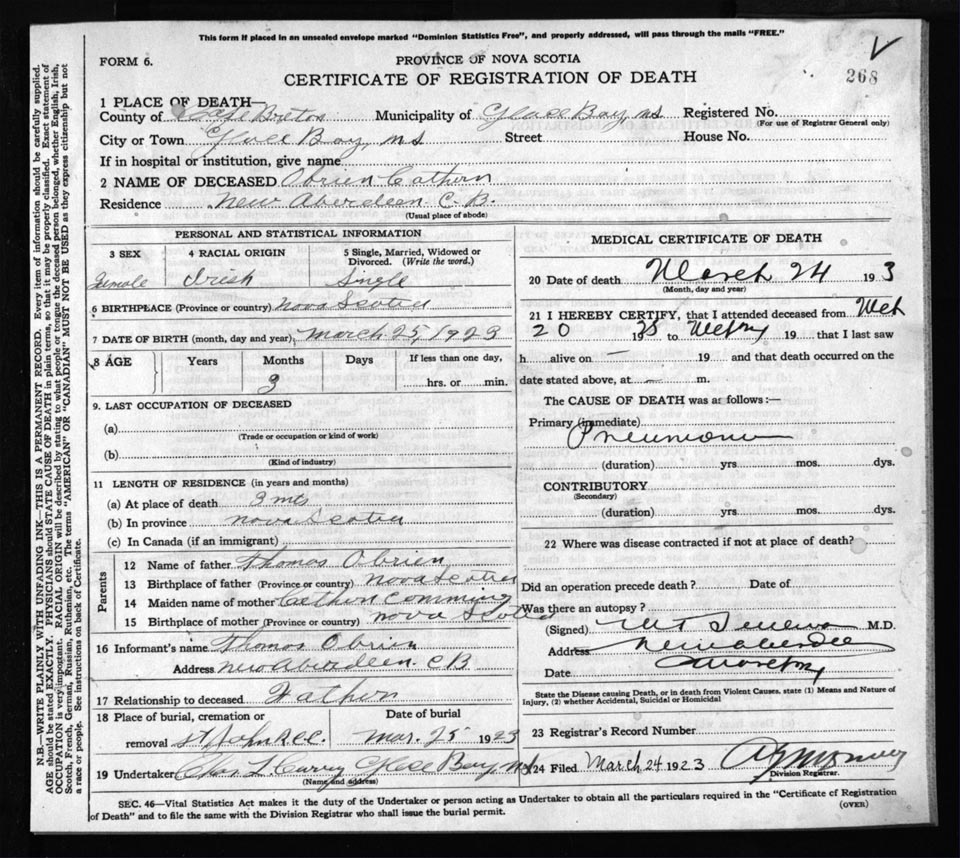 This form if placed in an unsealed envelope marked "Dominion Statistics Free", and properly addressed, will pass through the mails "FREE."
FORM 6.
PROVINCE OF NOVA SCOTIA
CERTIFICATE OF REGISTRATION OF DEATH
268
1 PLACE OF DEATH—
County of Cape Breton Municipality of Glace Bay, ns Registered No.
(For use of Registrar General only)
City or Town Glace Bay, ns Street House No.
If in hospital or institution, give name
2 NAME OF DECEASED Obrien Cathern
Residence New Aberdeen C.B.
(Usual place of abode)
PERSONAL AND STATISTICAL INFORMATION
3 SEX 4 RACIAL ORIGIN 5 Single, Married, Widowed or Divorced. (Write the word.)
Female Irish Single
6 BIRTHPLACE (Province or country) Nova Scotia
7 DATE OF BIRTH (month, day and year) March 25, 1923
8 AGE Years Months Days If less than one day,
3 hrs. or min.
9. LAST OCCUPATION OF DECEASED
(a)
(Trade or occupation or kind of work)
(b)
(Kind of industry)
11 LENGTH OF RESIDENCE (in years and months)
(a) At place of death 3 mts
(b) In province nova Scotia
(c) In Canada (if an immigrant)
Parents
12 Name of father Thomas Obrien
13 Birthplace of father (Province or country) Nova Scotia
14 Maiden name of mother Cathern
15 Birthplace of mother (Province or country) nova Scotia
16 Informant's name Thomas Obrien
Address New Aberdeen CB
17 Relationship to deceased Father
18 Place of burial, cremation or removal Date of burial
St John Mar. 25 1923
19 Undertaker Chas L Curry Glace Bay ns
(Name and address)
MEDICAL CERTIFICATE OF DEATH
20 Date of death March 24 193
(Month, day and year)
21 I HEREBY CERTIFY, that I attended deceased from
20 19 to 19 that I last saw
h alive on — 19 and that death occurred on the
date stated above, at — m.
The CAUSE OF DEATH was as follows:—
Primary (immediate)
Pneumonia
(duration) yrs. mos. dys.
CONTRIBUTORY
(Secondary)
(duration) yrs. mos. dys.
22 Where was disease contracted if not at place of death?
Did an operation precede death? Date of
Was there an autopsy?
(Signed) M.D.
Address
Date
State the Disease causing Death, or in death from Violent Causes, state (1) Means and Nature of
Injury, (2) whether Accidental, Suicidal or Homicidal
23 Registrar's Record Number
24 Filed March 24 1923
Division Registrar.
SEC. 46—Vital Statistics Act makes it the duty of the Undertaker or person acting as Undertaker to obtain all the particulars required in the "Certificate of Registration
of Death" and to file the same with the Division Registrar who shall issue the burial permit.
(OVER)
N.B.—WRITE PLAINLY WITH UNFADING INK—THIS IS A PERMANENT RECORD. Every item of information should be carefully supplied.
AGE should be stated EXACTLY. PHYSICIANS should STATE CAUSE OF DEATH in plain terms, so that it may be properly classified. Exact statement of
OCCUPATION is very important. RACIAL ORIGIN will be described by stating to what people or tongue the deceased person belonged, whether English, Irish,
Scotch, French, German, Russian, Ruthenian, etc. The terms "AMERICAN" or "CANADIAN" MUST NOT BE USED as they express citizenship but not
a race or people. See instructions on back of Certificate.